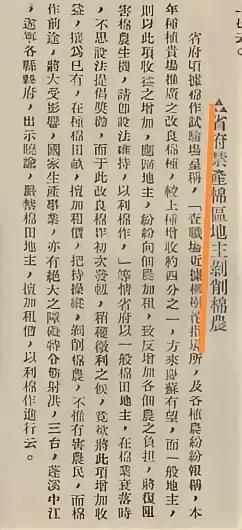 省府禁產棉區地主剝削棉農
省府頃據棉作試驗場呈稱,「查職場近據棉指導所,及各植農紛紛報稱,本
年種植貴場推廣之改良棉種,較上種增收約四分之一,方來喁蘇有望,而一般地主,
則以此項收益之增加,應歸地主,紛紛向佃農加租,致反增加各佃農之負担,將復阻
害棉農生機,請卽設法維持,以利棉作,」等情省府以一般棉田地主,在棉業衰落時
,不思設法提倡獎勵,而于此改良棉作初次發軔,稍獲微利之候,竟欲將此項增加收
益,攘爲已有,在種棉田畝,擅加租價,把持操縱,剝削棉農,不惟有害農民,而棉
作前途,將大受影響,國家生產事業,亦有絕大之障礙特令飭射洪,三台,蓬溪中江
,遂寧各縣縣府,出示曉諭,嚴禁棉田地主,擅加租價,以利棉作進行云。